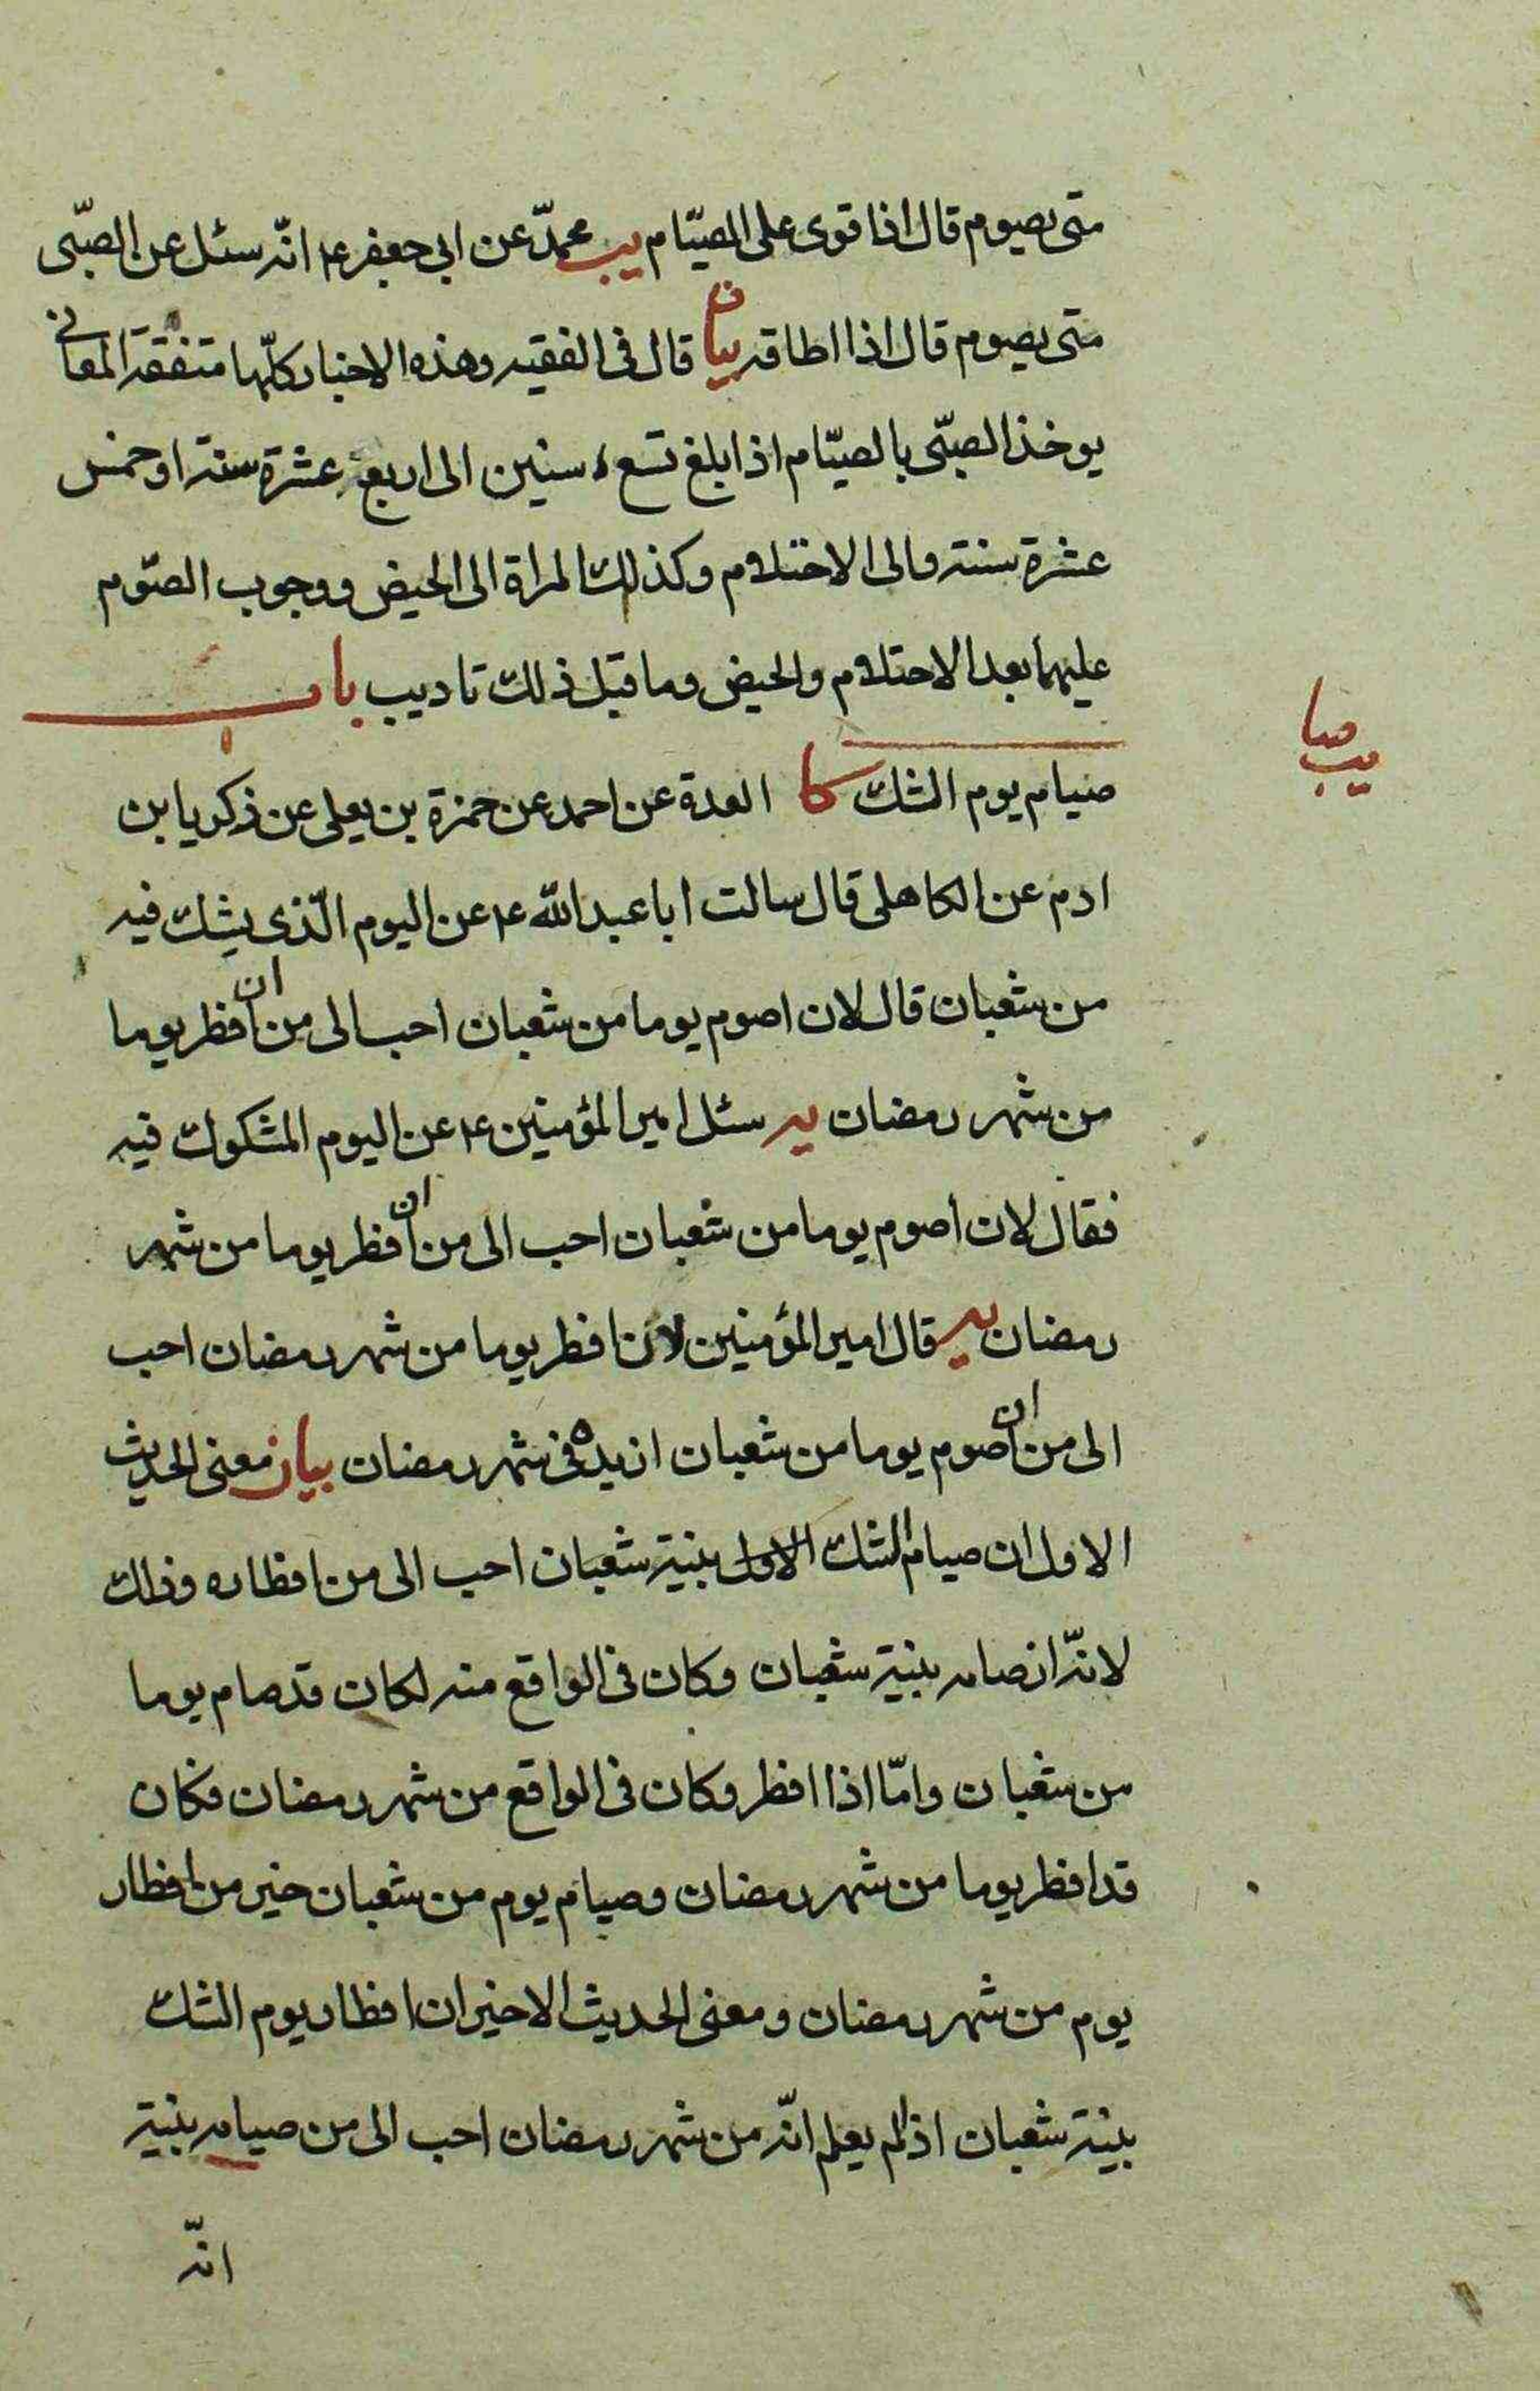 متى يصوم قال اذا قوى على الصيّام يب محمدّ عن ابى جعفر ع انّه سئل عن الصبّى
متى يصوم قال اذا اطاقه بيان قال فى الفقيه وهذه الاخبار كلّها متفقة المعانى
يوخذ الصبّى بالصيّام اذا بلغ تسع سنين الى اربعة عشرة سنة او خمس
عشرة سنة والى الاحتلام وكذلك المراة الى الحيض ووجوب الصّوم
عليهما بعد الاحتلام والحيض وما قبل ذلك تاديب باب
صيام يوم الشك كا العدة عن احمد عن حمزة بن يعلى عن زكريا بن
ادم عن الكاهلى قال سالت ابا عبد الله ع عن اليوم الّذى يشك فيه
من شعبان قال لان اصوم يوما من شعبان احب الى من ان افطر يوما
من شهر رمضان يه سئل امير المؤمنين ع عن اليوم المشكوك فيه
فقال لان اصوم يوما من شعبان احب الى من ان افطر يوما من شهر
رمضان يه قال امير المؤمنين لان افطر يوما من شهر رمضان احب
الى من ان اصوم يوما من شعبان ازيده فى شهر رمضان بيان معنى الحديث
الاول ان صيام الشك الاول بنية شعبان احب الى من افطاره وذلك
لانّه ان صامه بنية شعبان وكان فى الواقع منه لكان قد صام يوما
من شعبان وامّا اذا افطر وكان فى الواقع من شهر رمضان فكان
قد افطر يوما من شهر رمضان وصيام يوم من شعبان خير من افطار
يوم من شهر رمضان ومعنى الحديث الاخير ان افطار يوم الشك
بنية شعبان اذا لم يعلم انّه من شهر رمضان احب الى من صيامه بنية
انّه